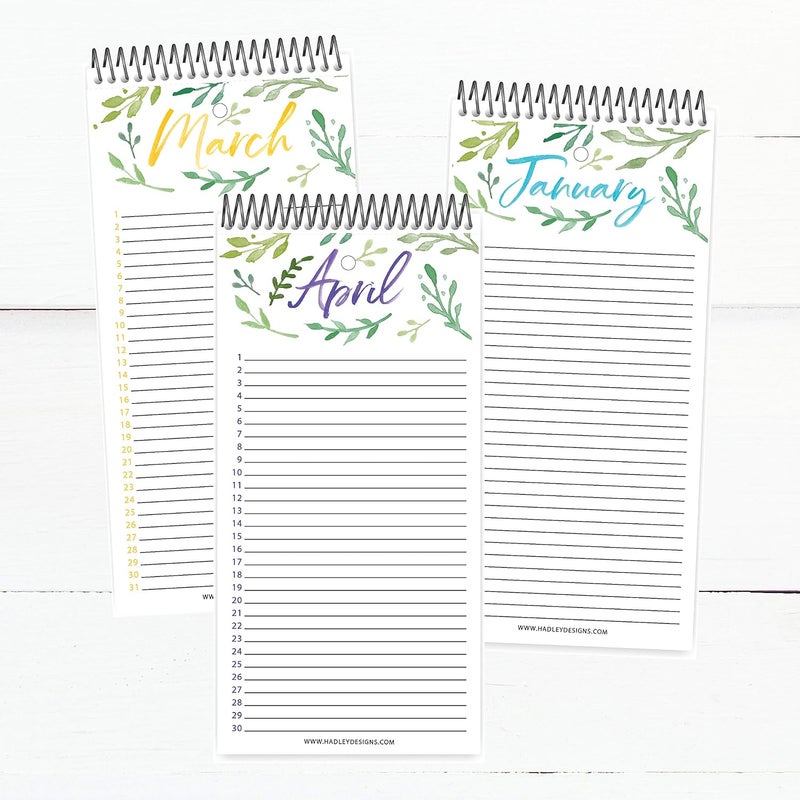 March
1
2
3
4
5
6
7
8
9
10
11
12
13
14
15
16
17
18
19
20
21
22
23
24
25
26
27
28
29
30
31
April
1
2
3
4
5
6
7
8
9
10
11
12
13
14
15
16
17
18
19
20
21
22
23
24
25
26
27
28
29
30
WWW.HADLEYDESIGNS.COM
January
WWW.HADLEYDESIGNS.COM